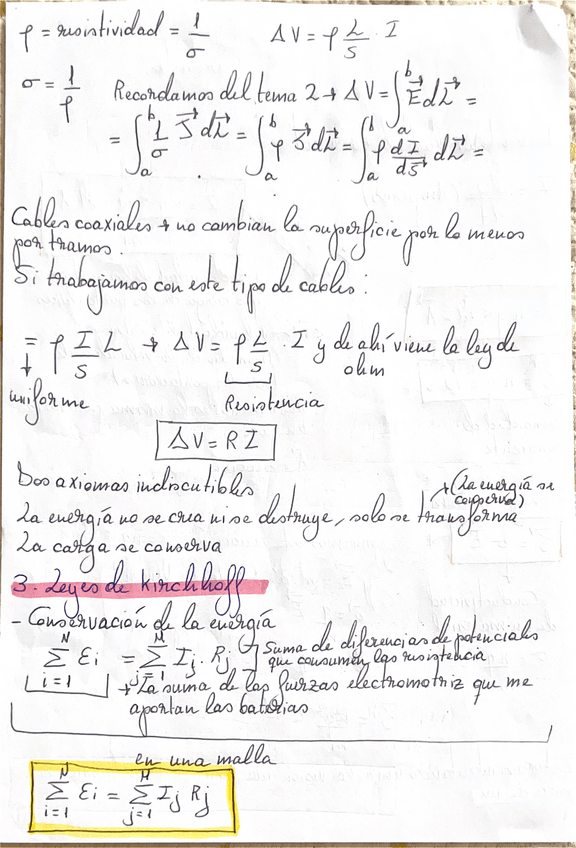 ρ = resistividad = 1/σ   ΔV = ρ L/S · I
σ = 1/ρ   Recordamos del tema 2 → ΔV = ∫ₐᵇ E⃗ dL⃗ =
= ∫ₐᵇ 1/σ J⃗ dL⃗ = ∫ₐᵇ ρ J⃗ dL⃗ = ∫ₐᵇ ρ dI/dS⃗ dL⃗ =
Cables coaxiales → no cambian la superficie por lo menos
por tramos.
Si trabajamos con este tipo de cables:
= ρ I/S L → ΔV = ρ L/S · I y de ahí viene la ley de
ohm
↓
uniforme   Resistencia
ΔV = R I
Dos axiomas indiscutibles
→ (La energía se
conserva)
La energía no se crea ni se destruye, solo se transforma
La carga se conserva
3. Leyes de Kirchhoff
- Conservación de la energía
∑ᵢ₌₁ᴺ Ɛi = ∑ⱼ₌₁ᴹ Ij · Rj → Suma de diferencias de potenciales
que consumen las resistencia
→ La suma de las fuerzas electromotriz que me
aportan las baterias
en una malla
∑ᵢ₌₁ᴺ Ɛi = ∑ⱼ₌₁ᴹ Ij Rj